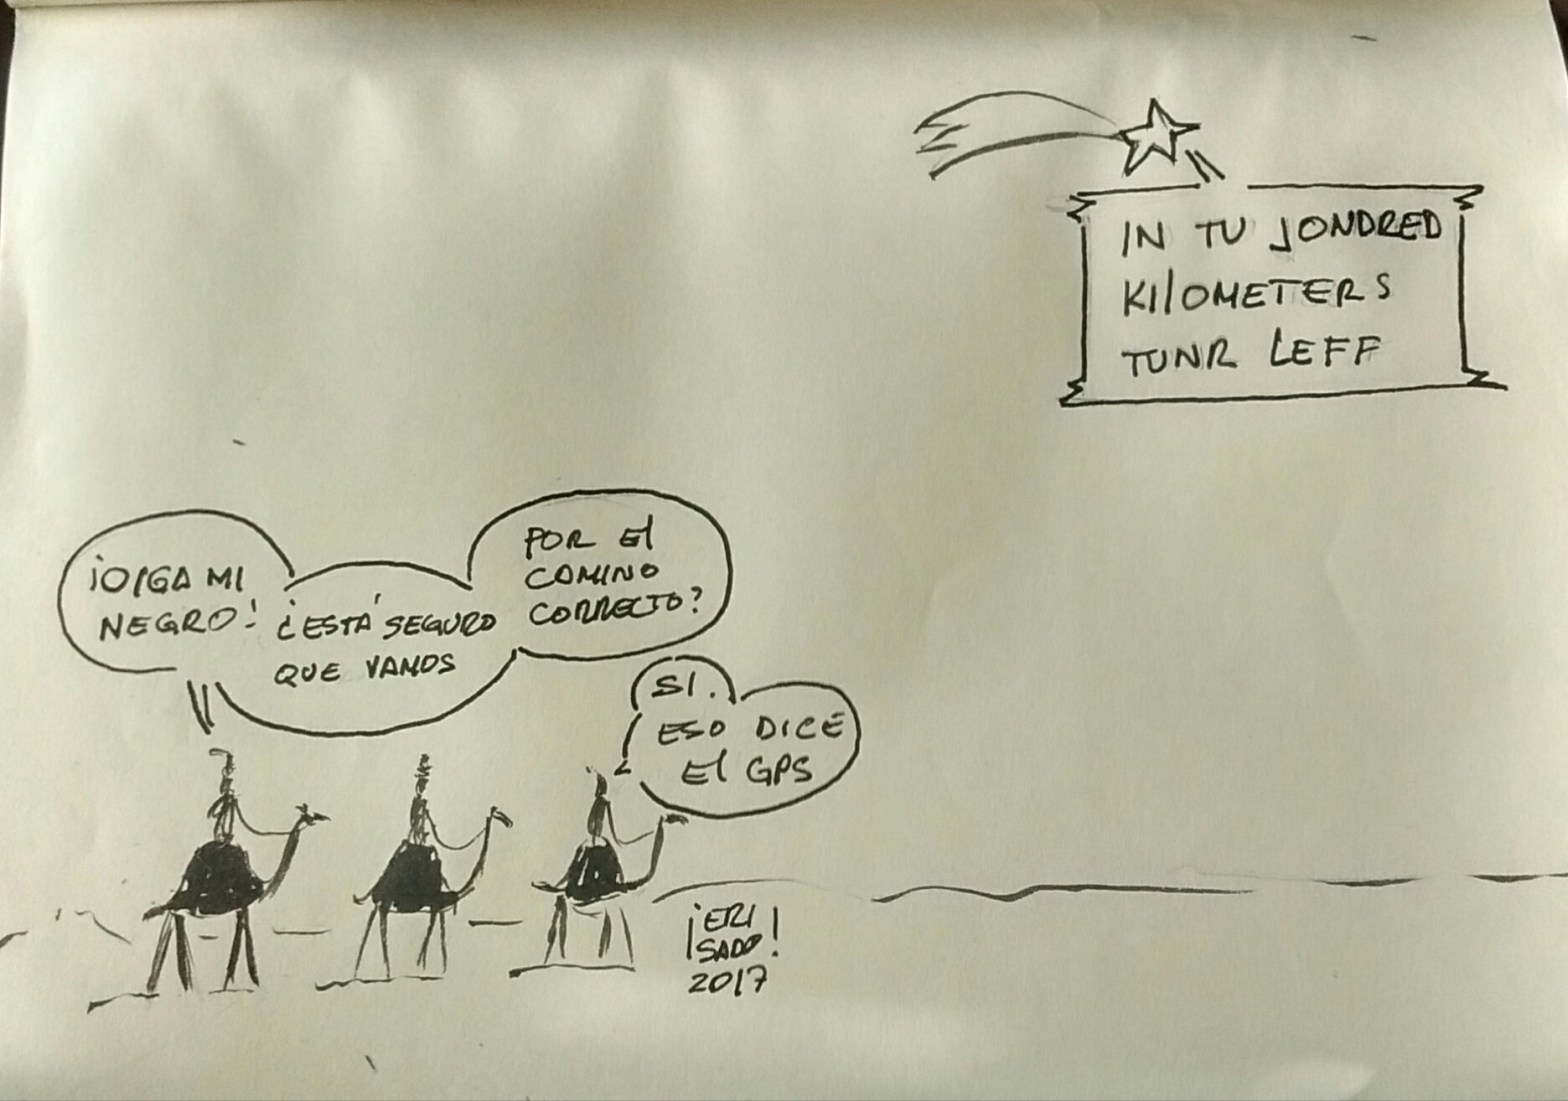 IN TU JONDRED
KILOMETERS
TUNR LEFF
¡OIGA MI
NEGRO!
¿ESTÁ SEGURO
QUE VAMOS
POR EL
CAMINO
CORRECTO?
SI.
ESO DICE
EL GPS
¡ERI
SADO!
2017